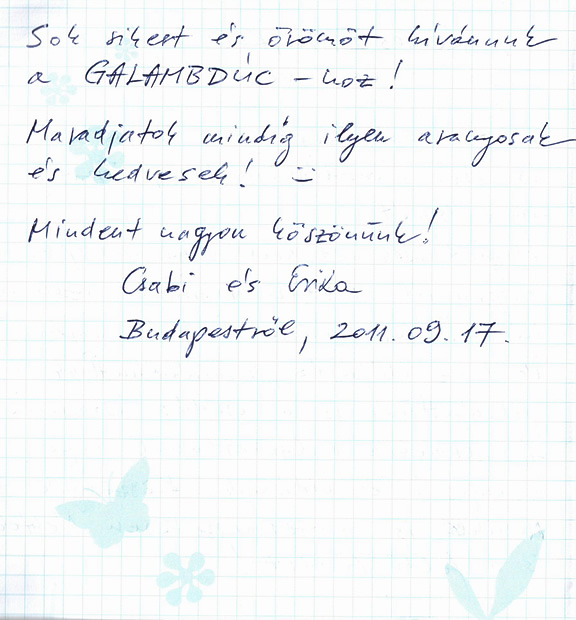 Sok sikert és örömöt kívánunk
a GALAMBDÚC - hoz!
Maradjatok mindig ilyen aranyosak
és kedvesek! :)
Mindent nagyon köszönünk!
Csabi és Erika
Budapestről, 2011. 09. 17.